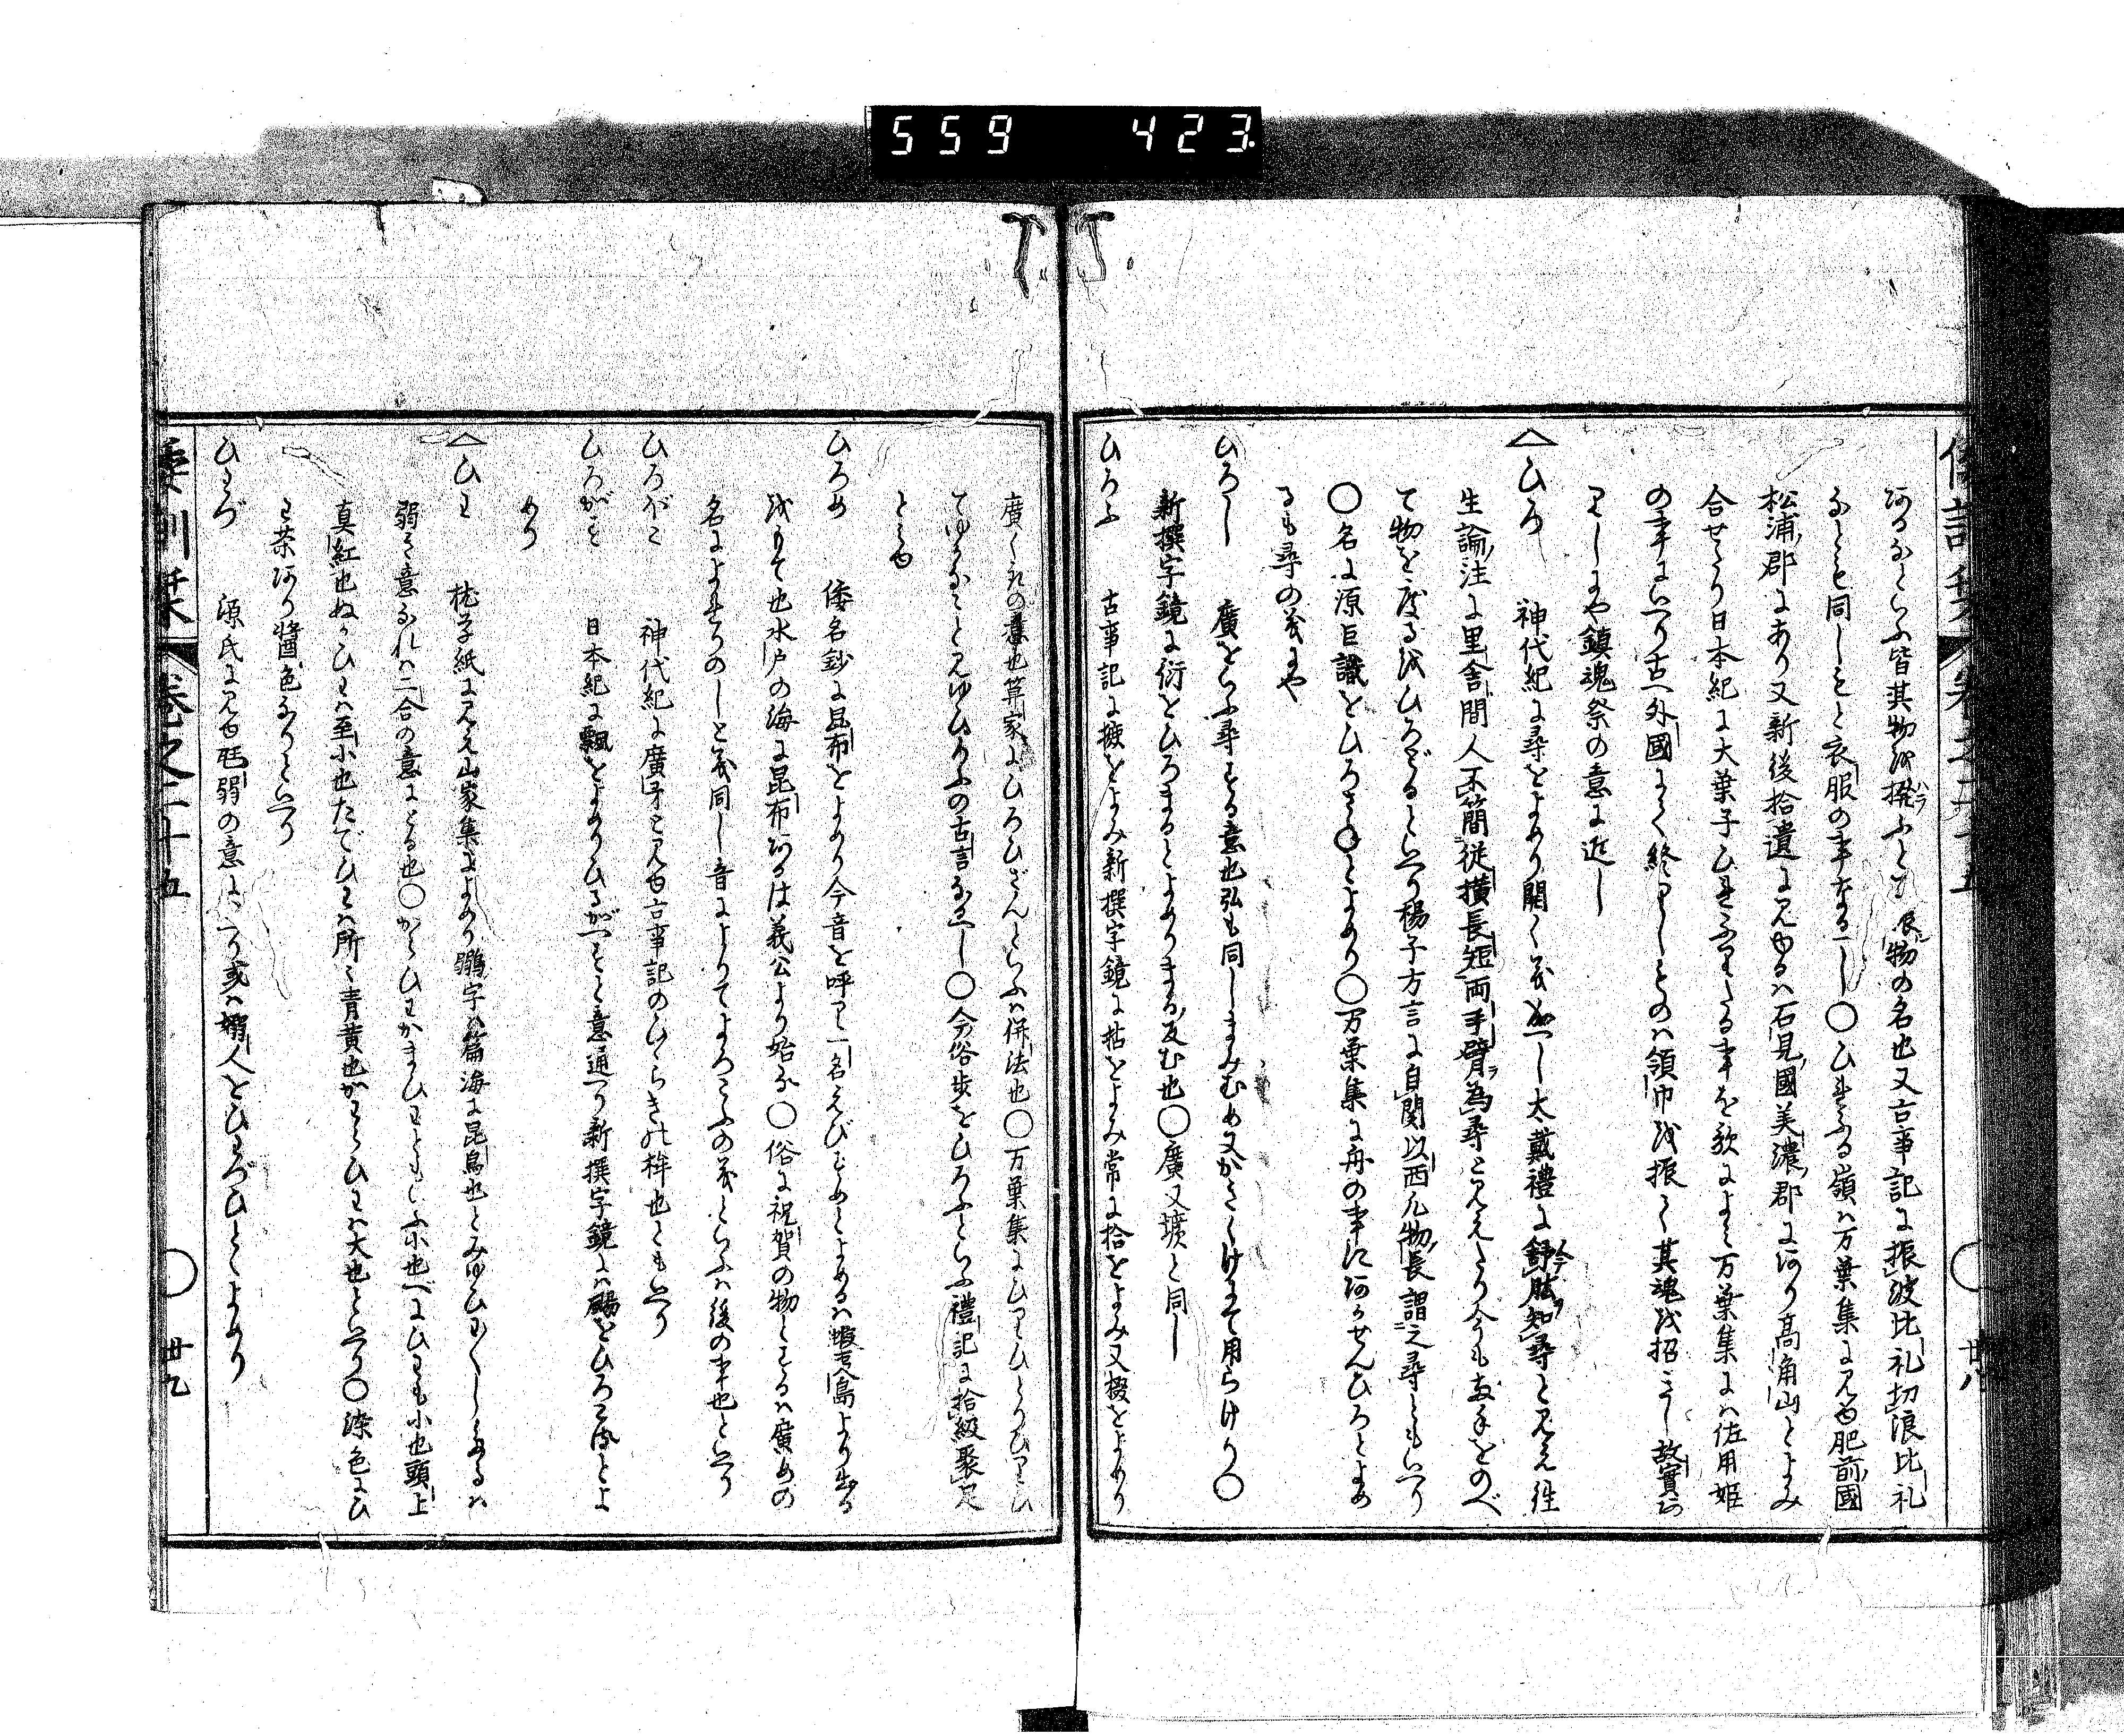 559 423
阿るなといふ皆其物を撥ふとき
物の名也又古事記に振波比礼切浪比礼
なとも同しもと衣服の事なるへし○ひれふる嶺は万葉集に見ゆ肥前國
松浦郡にあり又新後拾遺に見ゆるは石見國美濃郡に阿り高角山とよみ
合せたり日本紀に大葉子ひれふりたる事を歌によみ万葉集には佐用姫
の事にいへり古へ外國にて
領巾を振て其魂を招こうし故實阿
りしにや鎮魂祭の意に近し
△ひろ 神代紀に尋をよめり開く義なへし大戴禮に舒肱知尋と見え往
生論注に里舎間人不簡従横長短両手臂為尋と見えたり今も両手をのべ
て物を度るをひろどるといへり楊子方言に自関以西凡物長謂之尋ともいへり
○名に源巨識をひろさとよめり○万葉集に舟の事に阿らせんひろとよめ
るも尋の義にや
ひろし 廣をいふ尋する意也弘も同し
用らけり○
新撰字鏡に衍をひろまるとよめりまる反む也○廣又壙と同し
ひろふ 古事記に摭をよみ新撰字鏡に拈をよみ常に拾をよみ又掇をよめり
廣くの意也算家にひろひざんといふは併法也○万葉集にひりひとりひりひ
てゆかなと見ゆひりふの古言なるへし○今俗歩をひろふといふ禮記に拾級聚足
と見ゆ
ひろめ 倭名鈔に昆布をよめり今音を呼り一名えびすめとよめるは蝦夷島より出る
をもて也水戸の海に昆布阿るは義公より始る○俗に祝賀の物とするは廣めの
名によれりのしと義同し音によりてよろこふの義といふは後の事也といへり
ひろぼこ 神代紀に廣矛と見ゆ古事記のひゝらき此桙也ともいへり
ひろがへ 日本紀に飄をよめりひるがへすと意通へり新撰字鏡には颺をひろこるとよ
めり
△ひわ 枕草紙に見え山家集によめり鶸字は篇海に昆鳥也とみゆひわ〳〵しなるは
弱き意なれは二合の意にとる也○からひわかまひわともいふ小也べにひわも小也頭上
真紅也ぬかひわは至小也たでひわは所〻青黄也がわらひわは大也といへり○染色にひ
わ茶阿り醤色なりといへり
ひわづ 源氏に見ゆ尫弱の意にいへり或は嫋人をひわづひとゝよめり
倭訓栞 巻之二十五 ○ 廿八
倭訓栞 巻之二十五 ○ 廿九